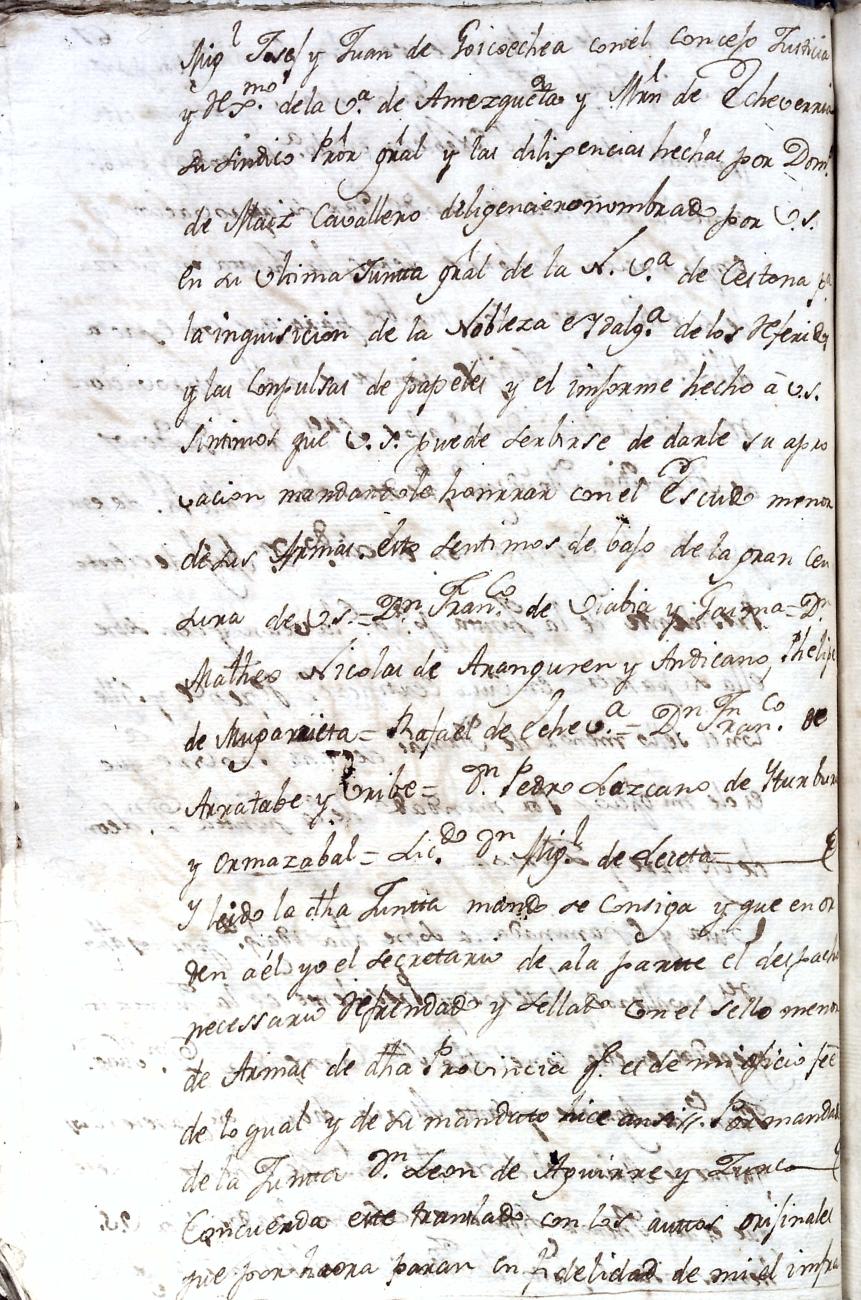 Migl Josef y Juan de Goicoechea con el Concejo Justicia
y Rexmo. de la Va. de Amezqueta y Mrn de Echeverria
su sindico Pror gral y las dilixencias hechas por Domo.
de Maiz Cavallero diligenciero nombrado por V.S.
en su Vltima Juntta gral de la N. Va. de Cestona pa.
la inquisicion de la Nobleza e Ydalga. de los Referidos
y las Conpulsas de papeles y el informe hecho à V.S.
sintimos que V.S. puede serbirse de darle su apro
vacion mandandole honrrar con el Escudo menor
de sus Armas. esto sentimos de bajo de la gran cen
sura de V.S. = Dn Franco. de Viabia y = Dn
Matheo Nicolas de Aranguren y Andicano, Phelipe
de Muguruieta = Rafael de Echeva. = Dn Franco. de
Arratabe y Vribe = Dn Pedro Lazcano de Yturburu
y Ormazabal = Licdo. Dn Migl. de Leceta
Y leido la dha Juntta mando se Consiga y que en or
den a él yo el secretario de a la partte el despacho
necessario Refrendado y sellado con el sello menor
de Armas de dha Provincia q. es de mi oficio fee
de lo qual y de su mandato hice ansi. Por mandado
de la Juntta Dn. Leon de Aguirre y
Concuerda este tranlado con los auttos orijinales
que por haora paran en fidelidad de mi el infra